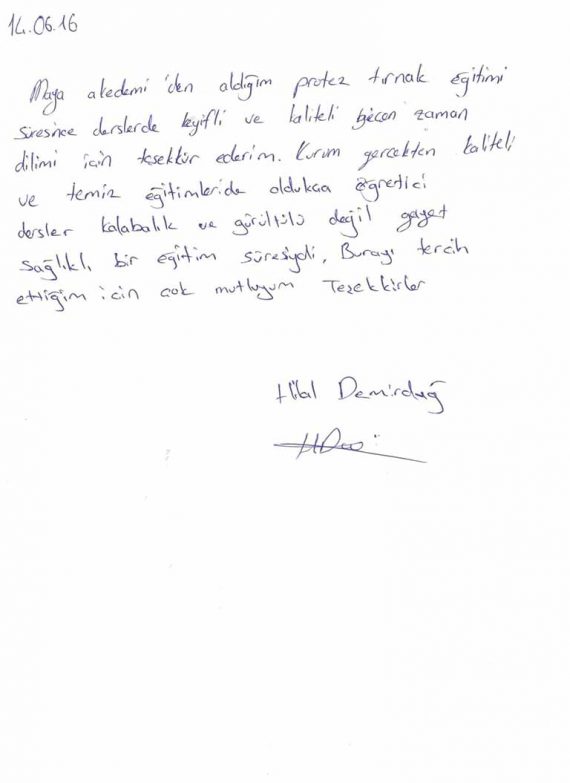 14.06.16
Maya akedemi'den aldığım protez tırnak eğitimi
süresince derslerde keyifli ve kaliteli geçen zaman
dilimi için teşekkür ederim. Kurum gerçekten kaliteli
ve temiz eğitimleride oldukca öğretici
dersler kalabalık ve gürültülü değil gayet
sağlıklı bir eğitim süresiydi, Burayı tercih
ettiğim için çok mutluyum Teşekkürler
Hilal Demirdağ